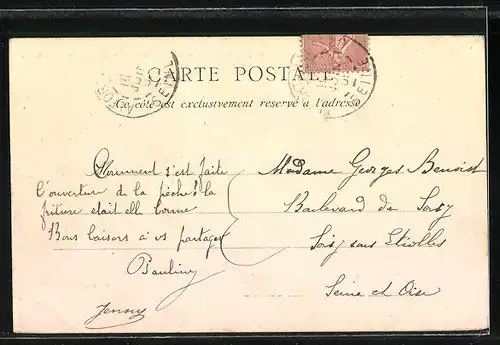 CARTE POSTALE
Ce côté est exclusivement réservé à l'adresse
Comment s'est faite
l'ouverture de la pêche? la
friture était elle bonne
Bons baisers à vs partager
Pauline
Jenny
Madame Georges Benoist
Boulevard de Soisy
Soisy sous Etiolles
Seine et Oise